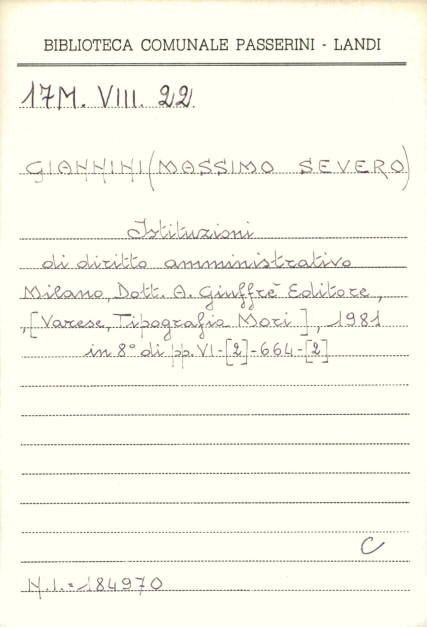 BIBLIOTECA COMUNALE PASSERINI - LANDI
17M. VIII. 22
GIANNINI (MASSIMO SEVERO)
Istituzioni
di diritto amministrativo
Milano, Dott. A. Giuffrè Editore,
,[Varese, Tipografia Mori], 1981
in 8° di pp. VI-[2]-664-[2]
C
N.I.=184970